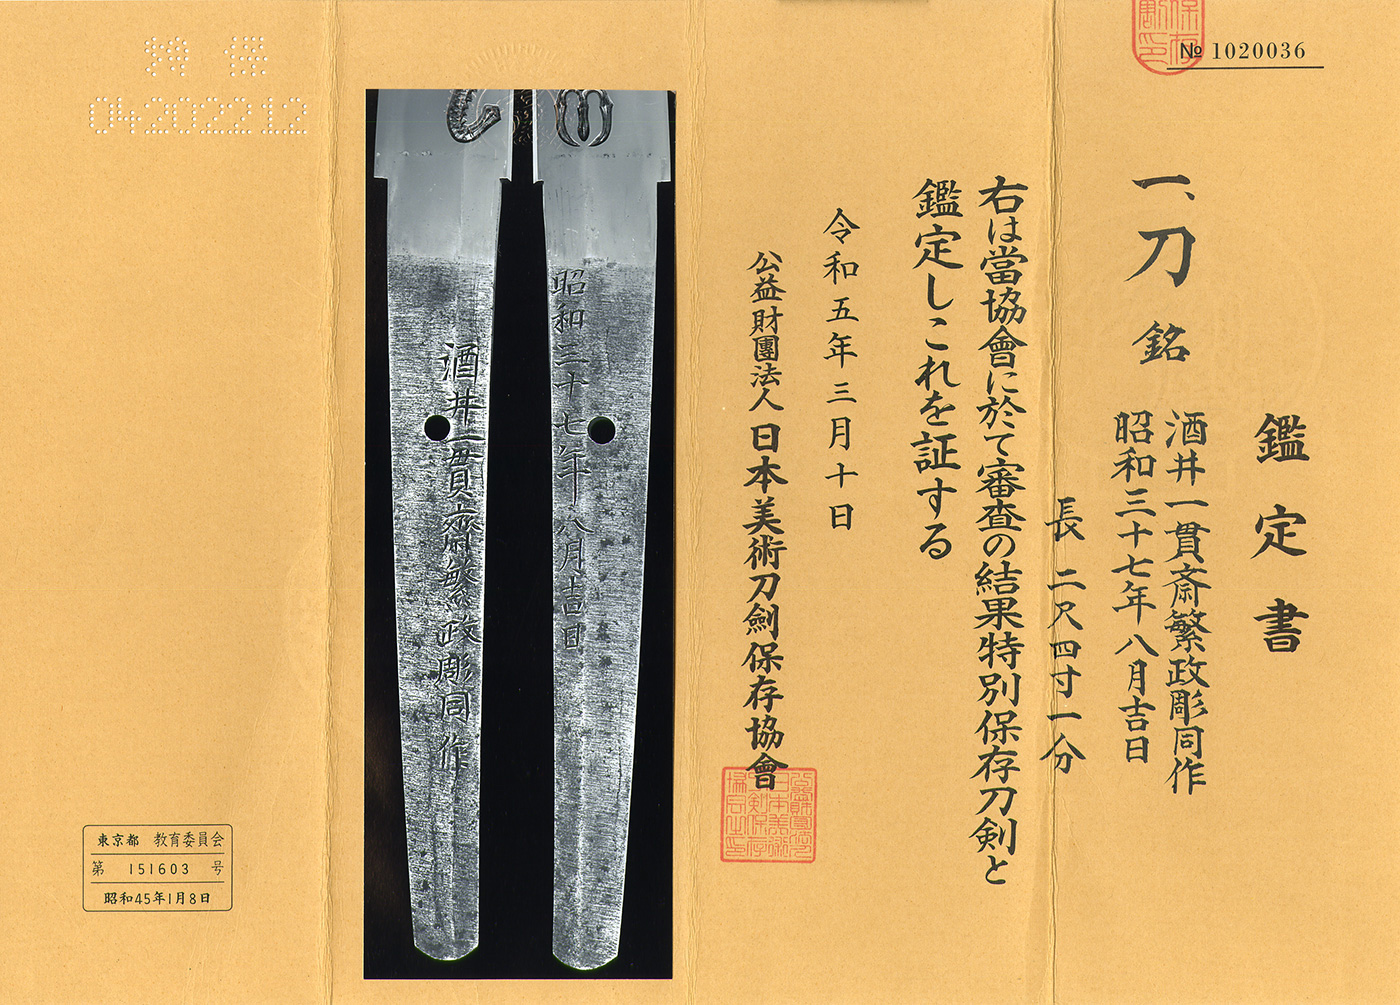 № 1020036
鑑定書
一、刀 銘
酒井一貫斎繁政彫同作
昭和三十七年八月吉日
長 二尺四寸一分
右は當協會に於て審査の結果特別保存刀剣と
鑑定しこれを証する
令和五年三月十日
公益財團法人日本美術刀劍保存協會
昭和三十七年八月吉日
酒井一貫齋繁政彫同作
0420221２
東京都 教育委員会
第 151603 号
昭和45年1月8日